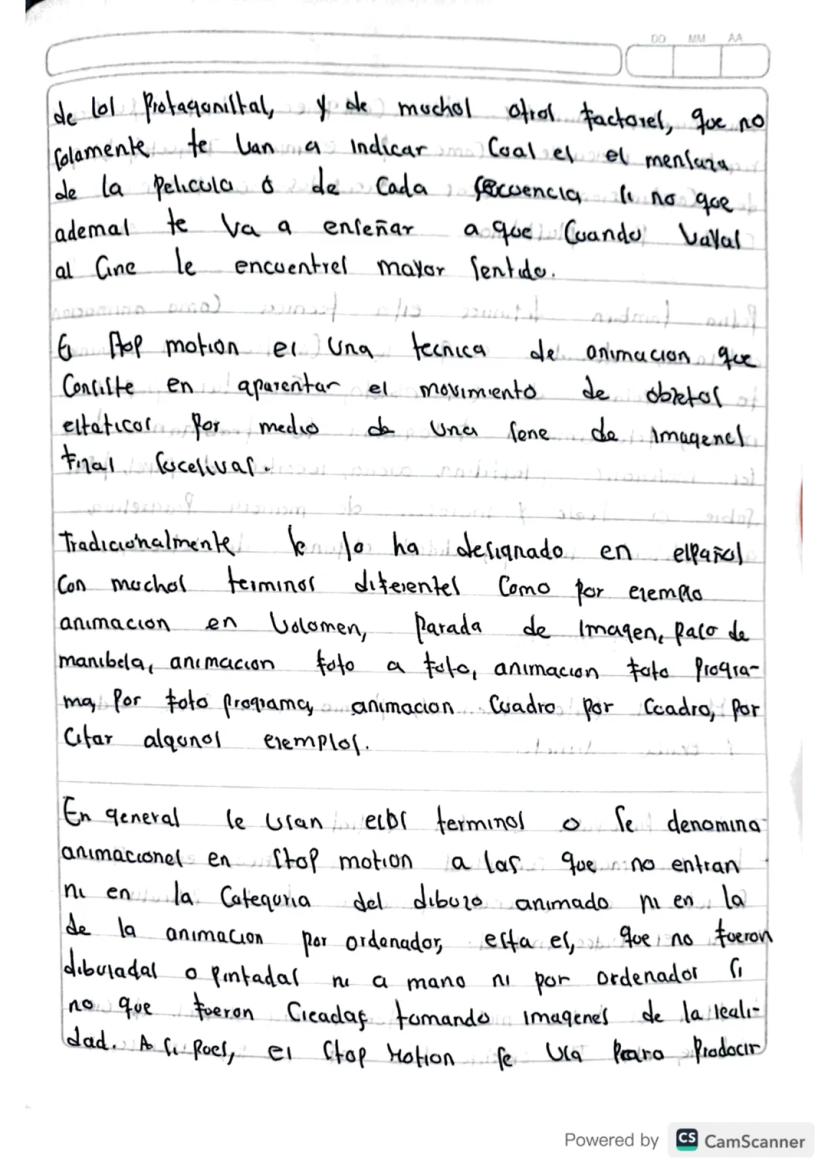 DD MM AA
de los Protagonistas, y de muchos otros factores, que no
solamente te van a indicar Cual es el mensaza
de la Pelicula o de Cada secuencia si no que
ademas te va a enseñar a que Cuando vayas
al Cine le encuentres mayor Sentido.
El Stop motion es una tecnica de animacion que
Consiste en aparentar el movimiento de objetos
estáticos por medio de una serie de imagenes
fizas sucesivas.
Tradicionalmente se lo ha designado en español
Con muchos terminos diferentes Como por ejemplo
animacion en Volomen, Parada de Imagen, paso de
manibela, animacion foto a foto, animacion foto Progra-
ma, Por foto programa, animacion Cuadro por Ccadro, por
Citar algunos ejemplos.
En general se usan esos terminos o Se denomina
animaciones en Stop motion a las que no entran
ni en la Categoria del dibuzo animado ni en la
de la animacion por ordenador, esta es, que no fueron
dibuladas o Pintadas ni a mano ni por ordenador si
no que fueron Creadas tomando imagenes de la reali-
dad. A si Poes, el Stop Motion se Usa Para Producir
Powered by CS CamScanner